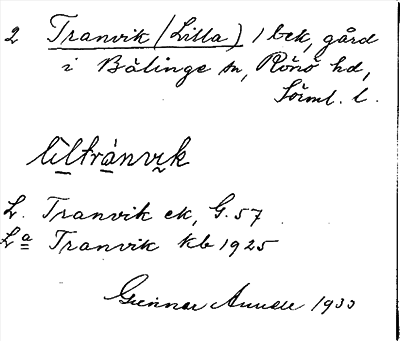 2 Tranvik (Lilla) 1 bek, gård
i Bälinge sn, Rönö hd,
Sörml. l.
liltránvik
L. Tranvik ek, G. 57
L:a Tranvik kb 1925
Gunnar Amnell 1933